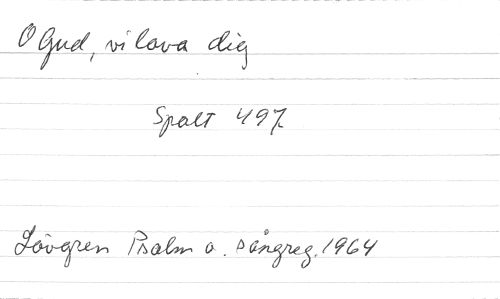 O Gud, vi lova dig
Spalt 497
Lövgren Psalm o. sångreg. 1964